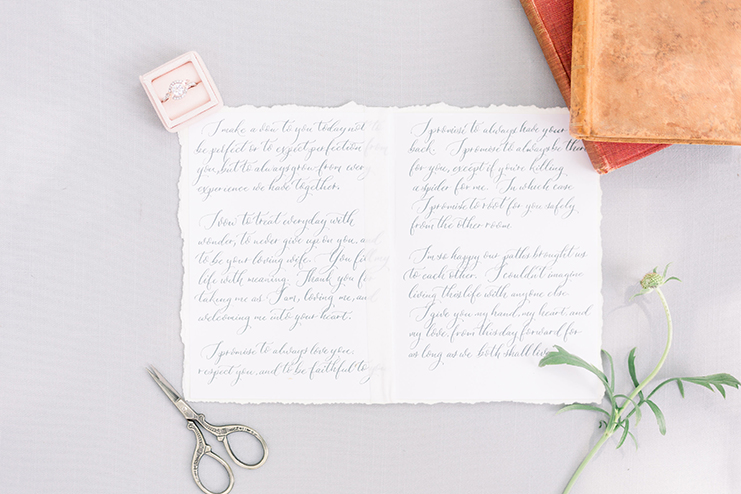 I make a vow to you today not
be perfect or to expect perfection from
you, but to always grow from every
experience we have together.
I vow to treat everyday with
wonder, to never give up on you, and
to be your loving wife. You fill my
life with meaning. Thank you for
taking me as I am, loving me, and
welcoming me into your heart.
I promise to always love you,
respect you, and to be faithful to
I promise to always have your
back. I promise to always be there
for you, except if you're killing
a spider for me. In which case
I promise to root for you safely,
from the other room.
I'm so happy our paths brought us
to each other. I couldn't imagine
living this life with anyone else.
I give you my hand, my heart, and
my love, from this day forward for
as long as we both shall live.